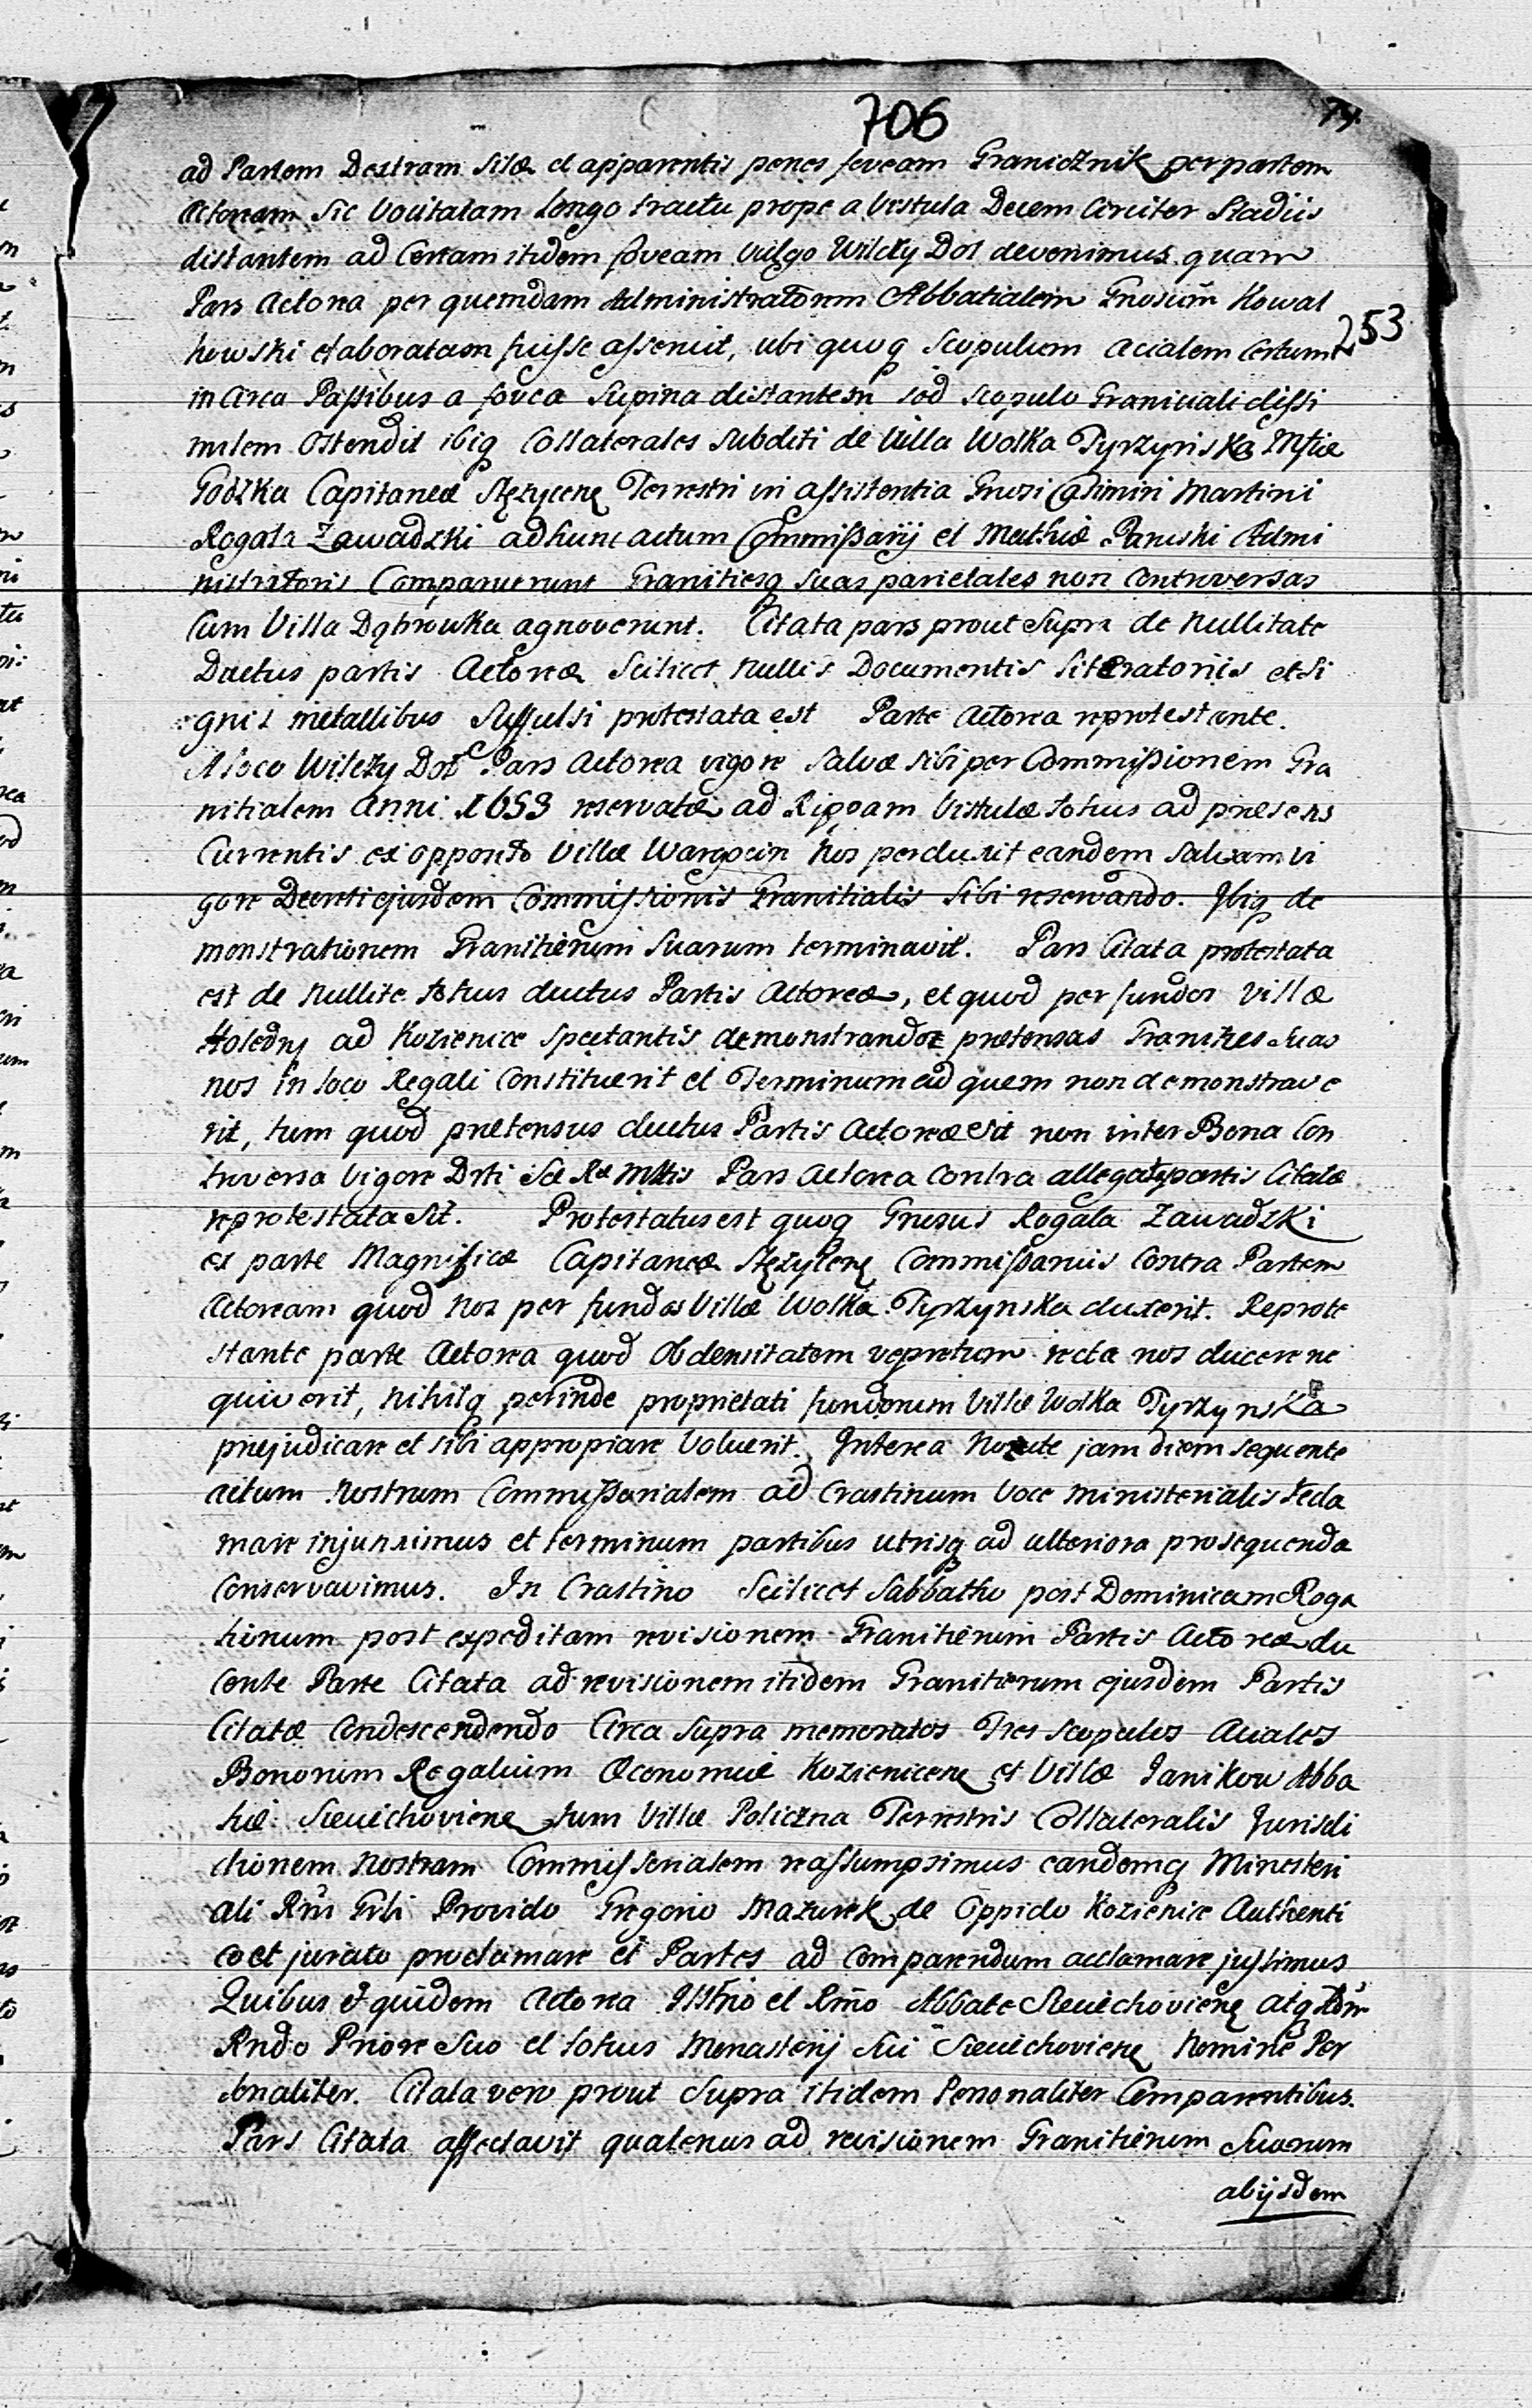 706
74.
ad Partem Dextram Sitæ et apparentis penes foveam Granicznik per partem
Actoream Sic Vocitatam longo tractu prope a Vistula Decem Circiter Stadiis
distantem ad Certam itidem foveam Vulgo Wilczy Dol devenimus quam
Pars Actorea per quemdam Administratorem Abbatialem Gnosum Kowal
253
kowski elaboratam fuisse asseruit, ubi quoq Scopulum Acialem Certum
in Circa Passibus a fovea Supina distantem sed Scopulo Granitiali dissi
milem Ostendit ibiq Collaterales Subditi de Villa Wolka Tyrzynska Mftiæ
Godzka Capitaneæ Stężycen Terrestri in assistentia Gnosi Casimiri Martini
Rogala Zawadzki ad hunc actum Commissarij et Mathiæ Paruski Admi
nistratoris Comparuerunt Granitiesq Suas parietales non Controversas
Cum Villa Dąbrowka agnoverunt. Citata pars prout Supra de Nullitate
Ductus partis Actoreæ Scilicet Nullis Documentis Literatoriis et Si
gnis metallibus Suffulsi protestata est Parte Actorea reprotestante.
A loco Wilczy Dol Pars Actorea vigore Salvæ sibi per Commissionem Gra
nitialem Anni 1653 reservatæ ad Ripam Vistulæ totius ad præsens
Currentis ex opposito Villæ Wargocin Nos perduxit eandem Salvam vi
gore Decreti ejusdem Commissionis Granitialis Sibi reservando. Ibiq de
monstrationem Granitierum Suarum terminavit. Pars Citata protestata
est de Nullite totius ductus Partis Actoreæ, et quod per fundos Villæ
Holedry ad Kozienice Spectantis demonstrandoe prætensas Granities Suas
nos in loco Regali Constituerit et Terminum ad quem non demonstrave
rit, tum quod prætensus ductus Partis Actoreæ Sit non inter Bona Con
troversa Vigore Drti Sæ Ræ Mttis Pars Actorea Contra allegata partis Citatæ
reprotestata Sit. Protestatus est quoq Gnosus Rogala Zawadzki
ex parte Magnificæ Capitaneæ Stężycen Commissarius Contra Partem
Actoream quod Nos per fundos Villæ Wolka Tyrzynska duxerit. Reprote
stante parte Actorea quod Ob densitatem vepretum recta nos ducere ne
quiverit, Nihilq perinde proprietati fundorum Villæ Wolka Tyrzynska
præjudicare et sibi appropiare Voluerit. Interea Nocte jam diem sequente
actum Nostrum Commissarialem ad Crastinum Voce Ministerialis recla
mare injunximus et terminum partibus utrisq ad ulteriora prosequenda
Conservavimus. In Crastino Scilicet Sabbatho post Dominicam Roga
tionum post expeditam revisionem Granitierum Partis Actoreæ du
cente Parte Citata ad revisionem itidem Granitierum ejusdem Partis
Citatæ Condescendendo Circa Supra memoratos Tres Scopulos Aciales
Bonorum Regalium Œconomiæ Kozienicen et Villæ Janikow Abba
tiæ Sieciechovien tum Villæ Policzna Terrestris Collateralis Jurisdi
ctionem Nostram Commisserialem reassumpsimus eandemq Ministeri
ali Rni Grli Provido Gregorio Mazurek de Oppido Kozienice Authenti
co et jurato proclamare et Partes ad Comparendum acclamare jussimus
Quibus et quidem Actorea Illstrio et Rmo Abbate Sieciechovien atq Adm
Rndo Priore Suo et totius Monasterij Sui Sieciechovien Nomine Per
sonaliter. Citata vero prout Supra itidem Personaliter Comparentibus.
Pars Citata affectavit quatenus ad revisionem Granitierum Suarum
abijsdem